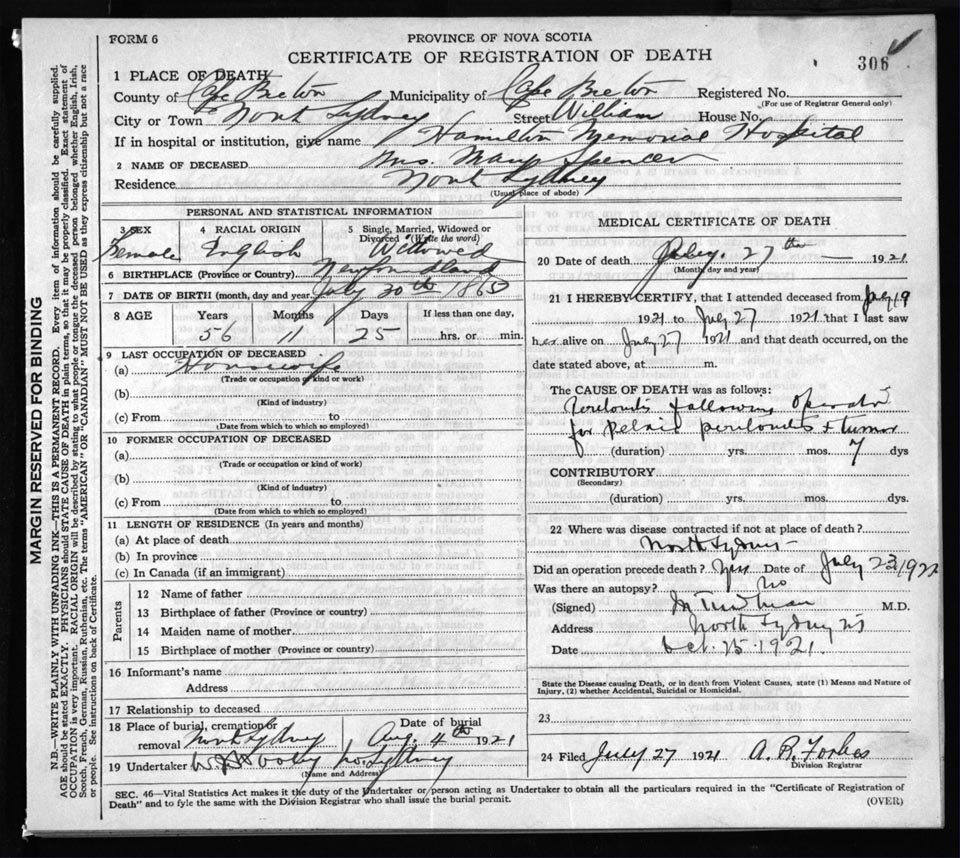 FORM 6
PROVINCE OF NOVA SCOTIA
CERTIFICATE OF REGISTRATION OF DEATH
306
1 PLACE OF DEATH
County of Cape Breton Municipality of Cape Breton Registered No.
(For use of Registrar General only)
City or Town North Sydney Street William House No.
If in hospital or institution, give name Hamilton Memorial Hospital
2 NAME OF DECEASED Mrs. Mary Spencer
Residence North Sydney
(Usual place of abode)
PERSONAL AND STATISTICAL INFORMATION
3 SEX 4 RACIAL ORIGIN 5 Single, Married, Widowed or
Divorced (Write the word)
Female English Widowed
6 BIRTHPLACE (Province or Country) Newfoundland
7 DATE OF BIRTH (month, day and year) July 30th 1865
8 AGE Years Months Days If less than one day,
56 11 25 hrs. or min.
9 LAST OCCUPATION OF DECEASED
(a) Housewife
(Trade or occupation kind or work)
(b)
(Kind of industry)
(c) From to
(Date from which to which so employed)
10 FORMER OCCUPATION OF DECEASED
(a)
(Trade or occupation or kind of work)
(b)
(Kind of industry)
(c) From to
(Date from which to which so employed)
11 LENGTH OF RESIDENCE (In years and months)
(a) At place of death
(b) In province
(c) In Canada (if an immigrant)
Parents
12 Name of father
13 Birthplace of father (Province or country)
14 Maiden name of mother
15 Birthplace of mother (Province or country)
16 Informant's name
Address
17 Relationship to deceased
18 Place of burial, cremation or Date of burial
removal North Sydney Aug. 4th 1921
19 Undertaker No. Sydney
(Name and Address)
MEDICAL CERTIFICATE OF DEATH
20 Date of death July. 27th — 1921
(Month, day and year)
21 I HEREBY CERTIFY, that I attended deceased from July 19
1921 to July 27 1921 that I last saw
her alive on July 27 1921 and that death occurred, on the
date stated above, at m.
The CAUSE OF DEATH was as follows:
Peritonitis following operation
for pelvic peritonitis + tumor
(duration) yrs. mos. 7 dys
CONTRIBUTORY
(Secondary)
(duration) yrs. mos. dys.
22 Where was disease contracted if not at place of death?
North Sydney
Did an operation precede death? Yes Date of July 23, 1922
Was there an autopsy? no
(Signed) M.D.
Address North Sydney NS
Date Oct. 25. 1921.
State the Disease causing Death, or in death from Violent Causes, state (1) Means and Nature of
Injury, (2) whether Accidental, Suicidal or Homicidal.
23
24 Filed July 27 1921 A. R. Forbes
Division Registrar
SEC. 46—Vital Statistics Act makes it the duty of the Undertaker or person acting as Undertaker to obtain all the particulars required in the "Certificate of Registration of
Death" and to fyle the same with the Division Registrar who shall issue the burial permit.
(OVER)
MARGIN RESERVED FOR BINDING
N.B.—WRITE PLAINLY WITH UNFADING INK—THIS IS A PERMANENT RECORD. Every item of information should be carefully supplied.
AGE should be stated EXACTLY. PHYSICIANS should STATE CAUSE OF DEATH in plain terms, so that it may be properly classified. Exact statement of
OCCUPATION is very important. RACIAL ORIGIN will be described by stating to what people or tongue the deceased person belonged whether English, Irish,
Scotch, French, German, Russian, Ruthenian, etc. The terms "AMERICAN" OR "CANADIAN" MUST NOT BE USED as they express citizenship but not a race
or people. See instructions on back of Certificate.